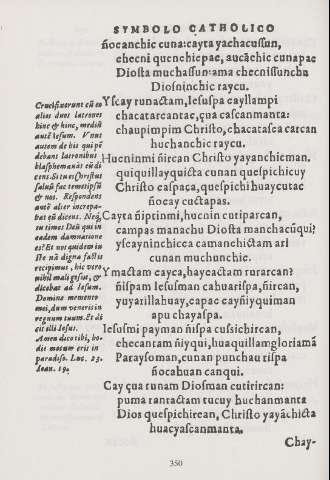 SYMBOLO CATHOLICO
ñocanchic cuna: cayta yachacussun,
checni quenchicpac, aucãchic cunapac
Diosta muchassun: ama checnissunchu
Diosninchic raycu.
Yscay runactam, Iesuspa cayllampi
chacatarcantac, çua cascanmanta:
chaupimpim Christo, chacatasca carcan
huchanchic raycu.
Hucninmi ñircan Christo yayanchicman.
quiquillayquicta cunan quespichicuy
Christo caspaca, quespichi huaycutac
ñocay cuctapas.
Cayta ñiptinmi, hucnin cutiparcan,
campas manachu Diosta manchacũqui?
yscayninchicca camanchictam ari
cunan muchunchic.
Ymactam cayca, hayçactam rurarcan?
ñispam Iesusman cahuarispa, ñircan,
yuyarillahuay, capac cayñiyquiman
apu chayaspa.
Iesusmi payman ñispa cussichircan,
checantam ñiyqui, huaquillamgloriamã
Paraysoman, cunan punchau tispa
ñocahuan canqui.
Cay çua runam Diosman cutirircan:
puma rantactam tucuy huchanmanta
Dios quespichircan, Christo yayãchicta
huacyascanmanta.
Chay-
Crucifixerunt cũ eo
alios duos latrones
hinc & hinc, mediũ
autẽ Iesum. Vnus
autem de his qui pẽ
debant latronibus
blasphemauit eũ di
cens. Si tu es Christus
saluũ fac temetipsũ
& nos. Respondens
autẽ alter increpa-
bat eũ dicens. Neq;
tu times Deũ qui in
eadem damnatione
es? Et nos quidem iu
ste nã digna factis
recipimus, hic vero
nihil mali gessit, &
dicebat ad Iesum.
Domine memento
mei, dum veneris in
regnum tuum. Et di
cit illi Iesus.
Amen dico tibi, ho-
die mecum eris in
paradiso. Luc. 23.
Ioan. 19.
350